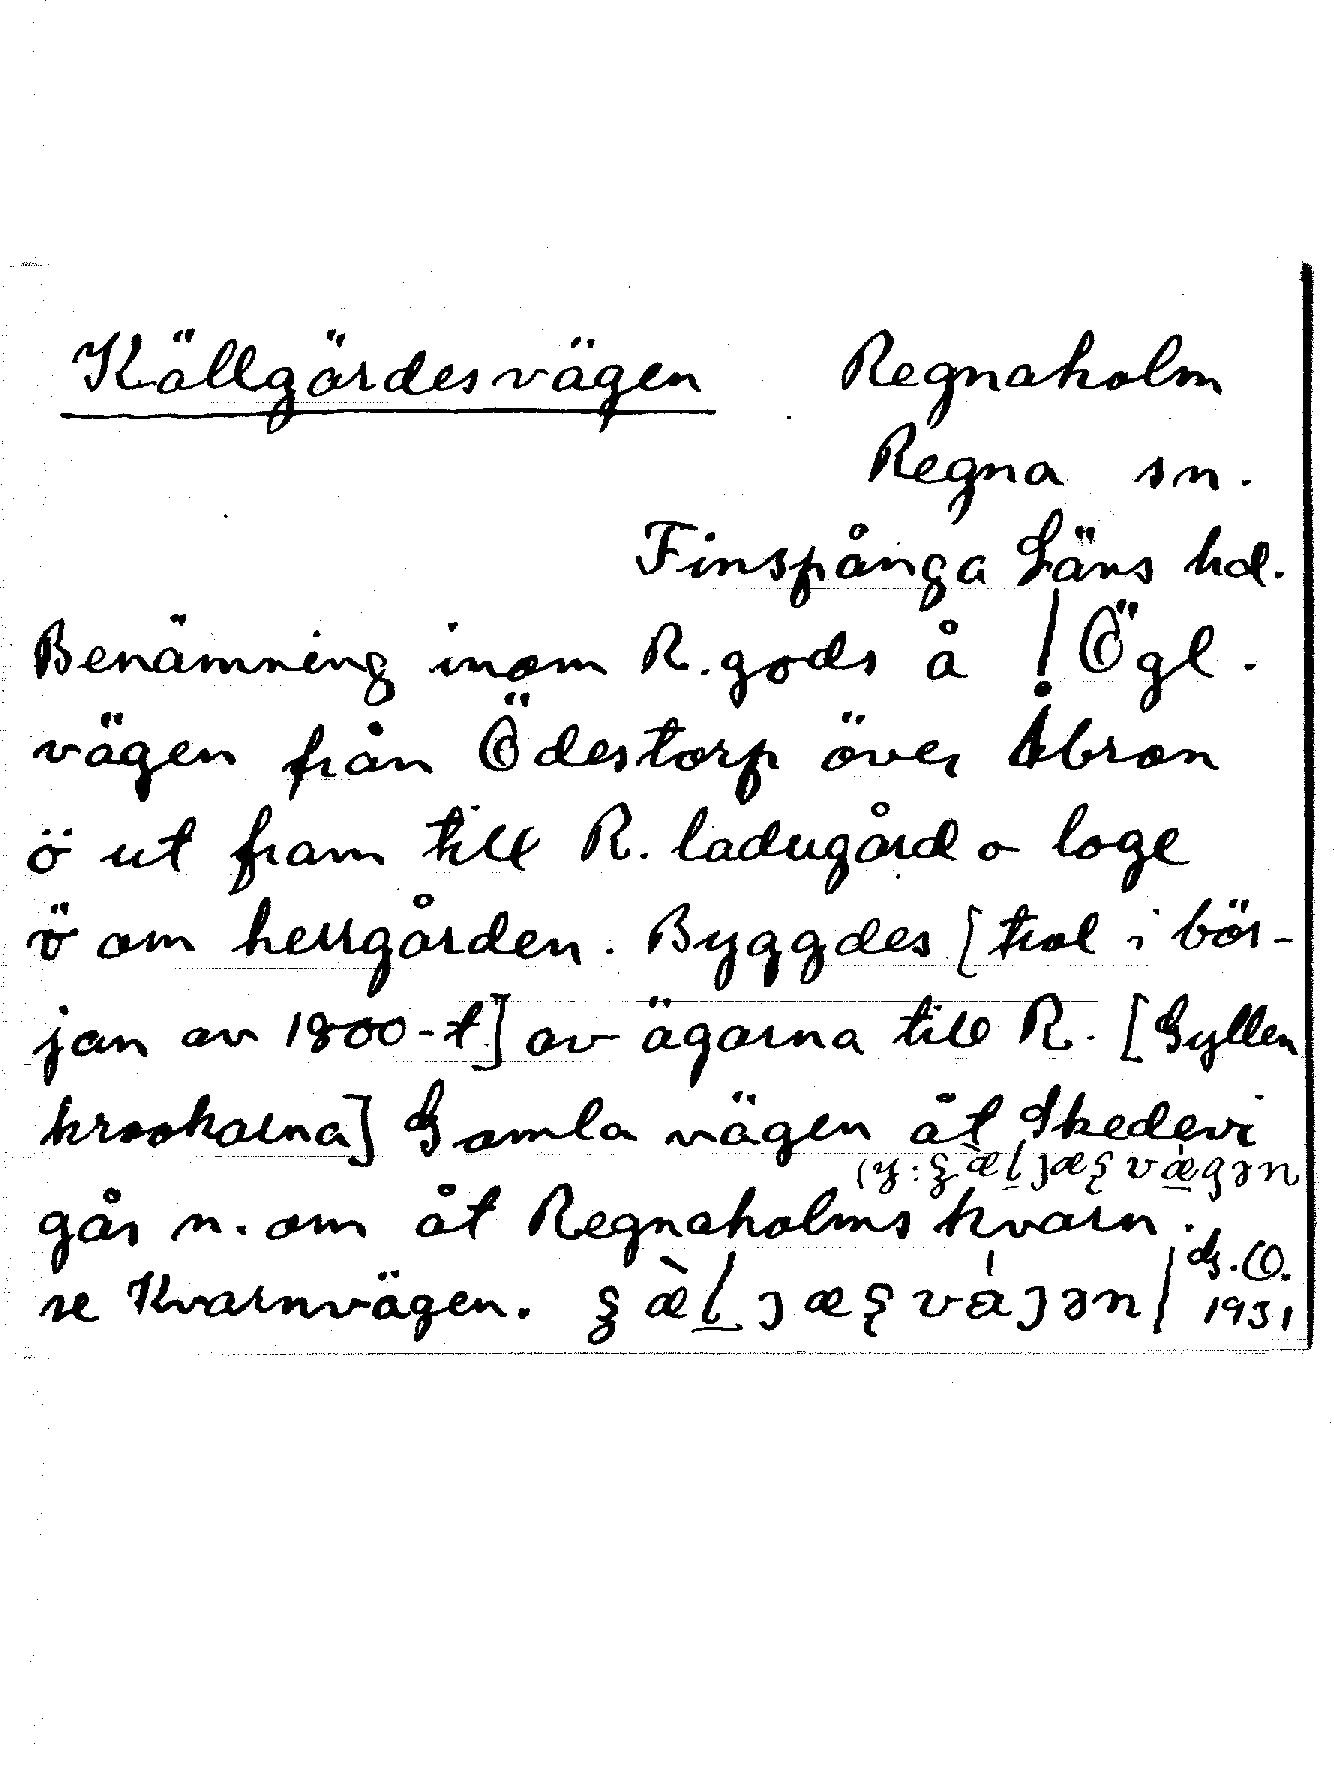 Källgärdesvägen Regnaholm
Regna sn.
Finspånga Läns hd.
Benämning inom R. gods å | Ögl.
vägen från Ödestorp över Åbron
ö ut fram till R. ladugård o loge
ö om herrgården. Byggdes [trol i bör-
jan av 1800-t] av ägarna till R. [Gyllen
krookarna] Gamla vägen åt Skedevi
går n. om åt Regnaholms kvarn.
se Kvarnvägen.
G.O.
1931